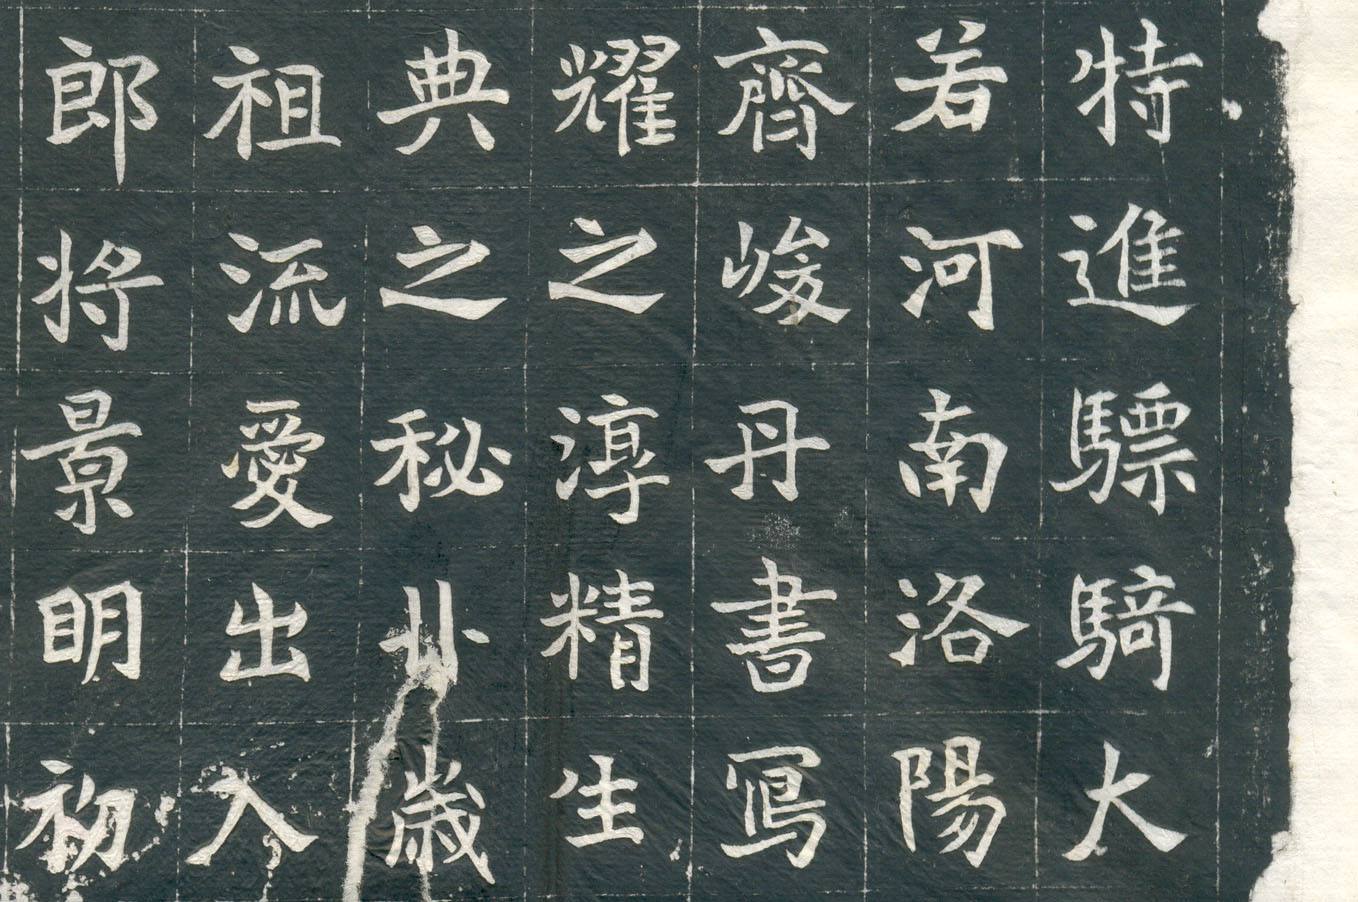 特進驃騎大
若河南洛陽
齊峻丹書寫
耀之淳精生
典之秘 歲
祖流愛出入
郎將景明初